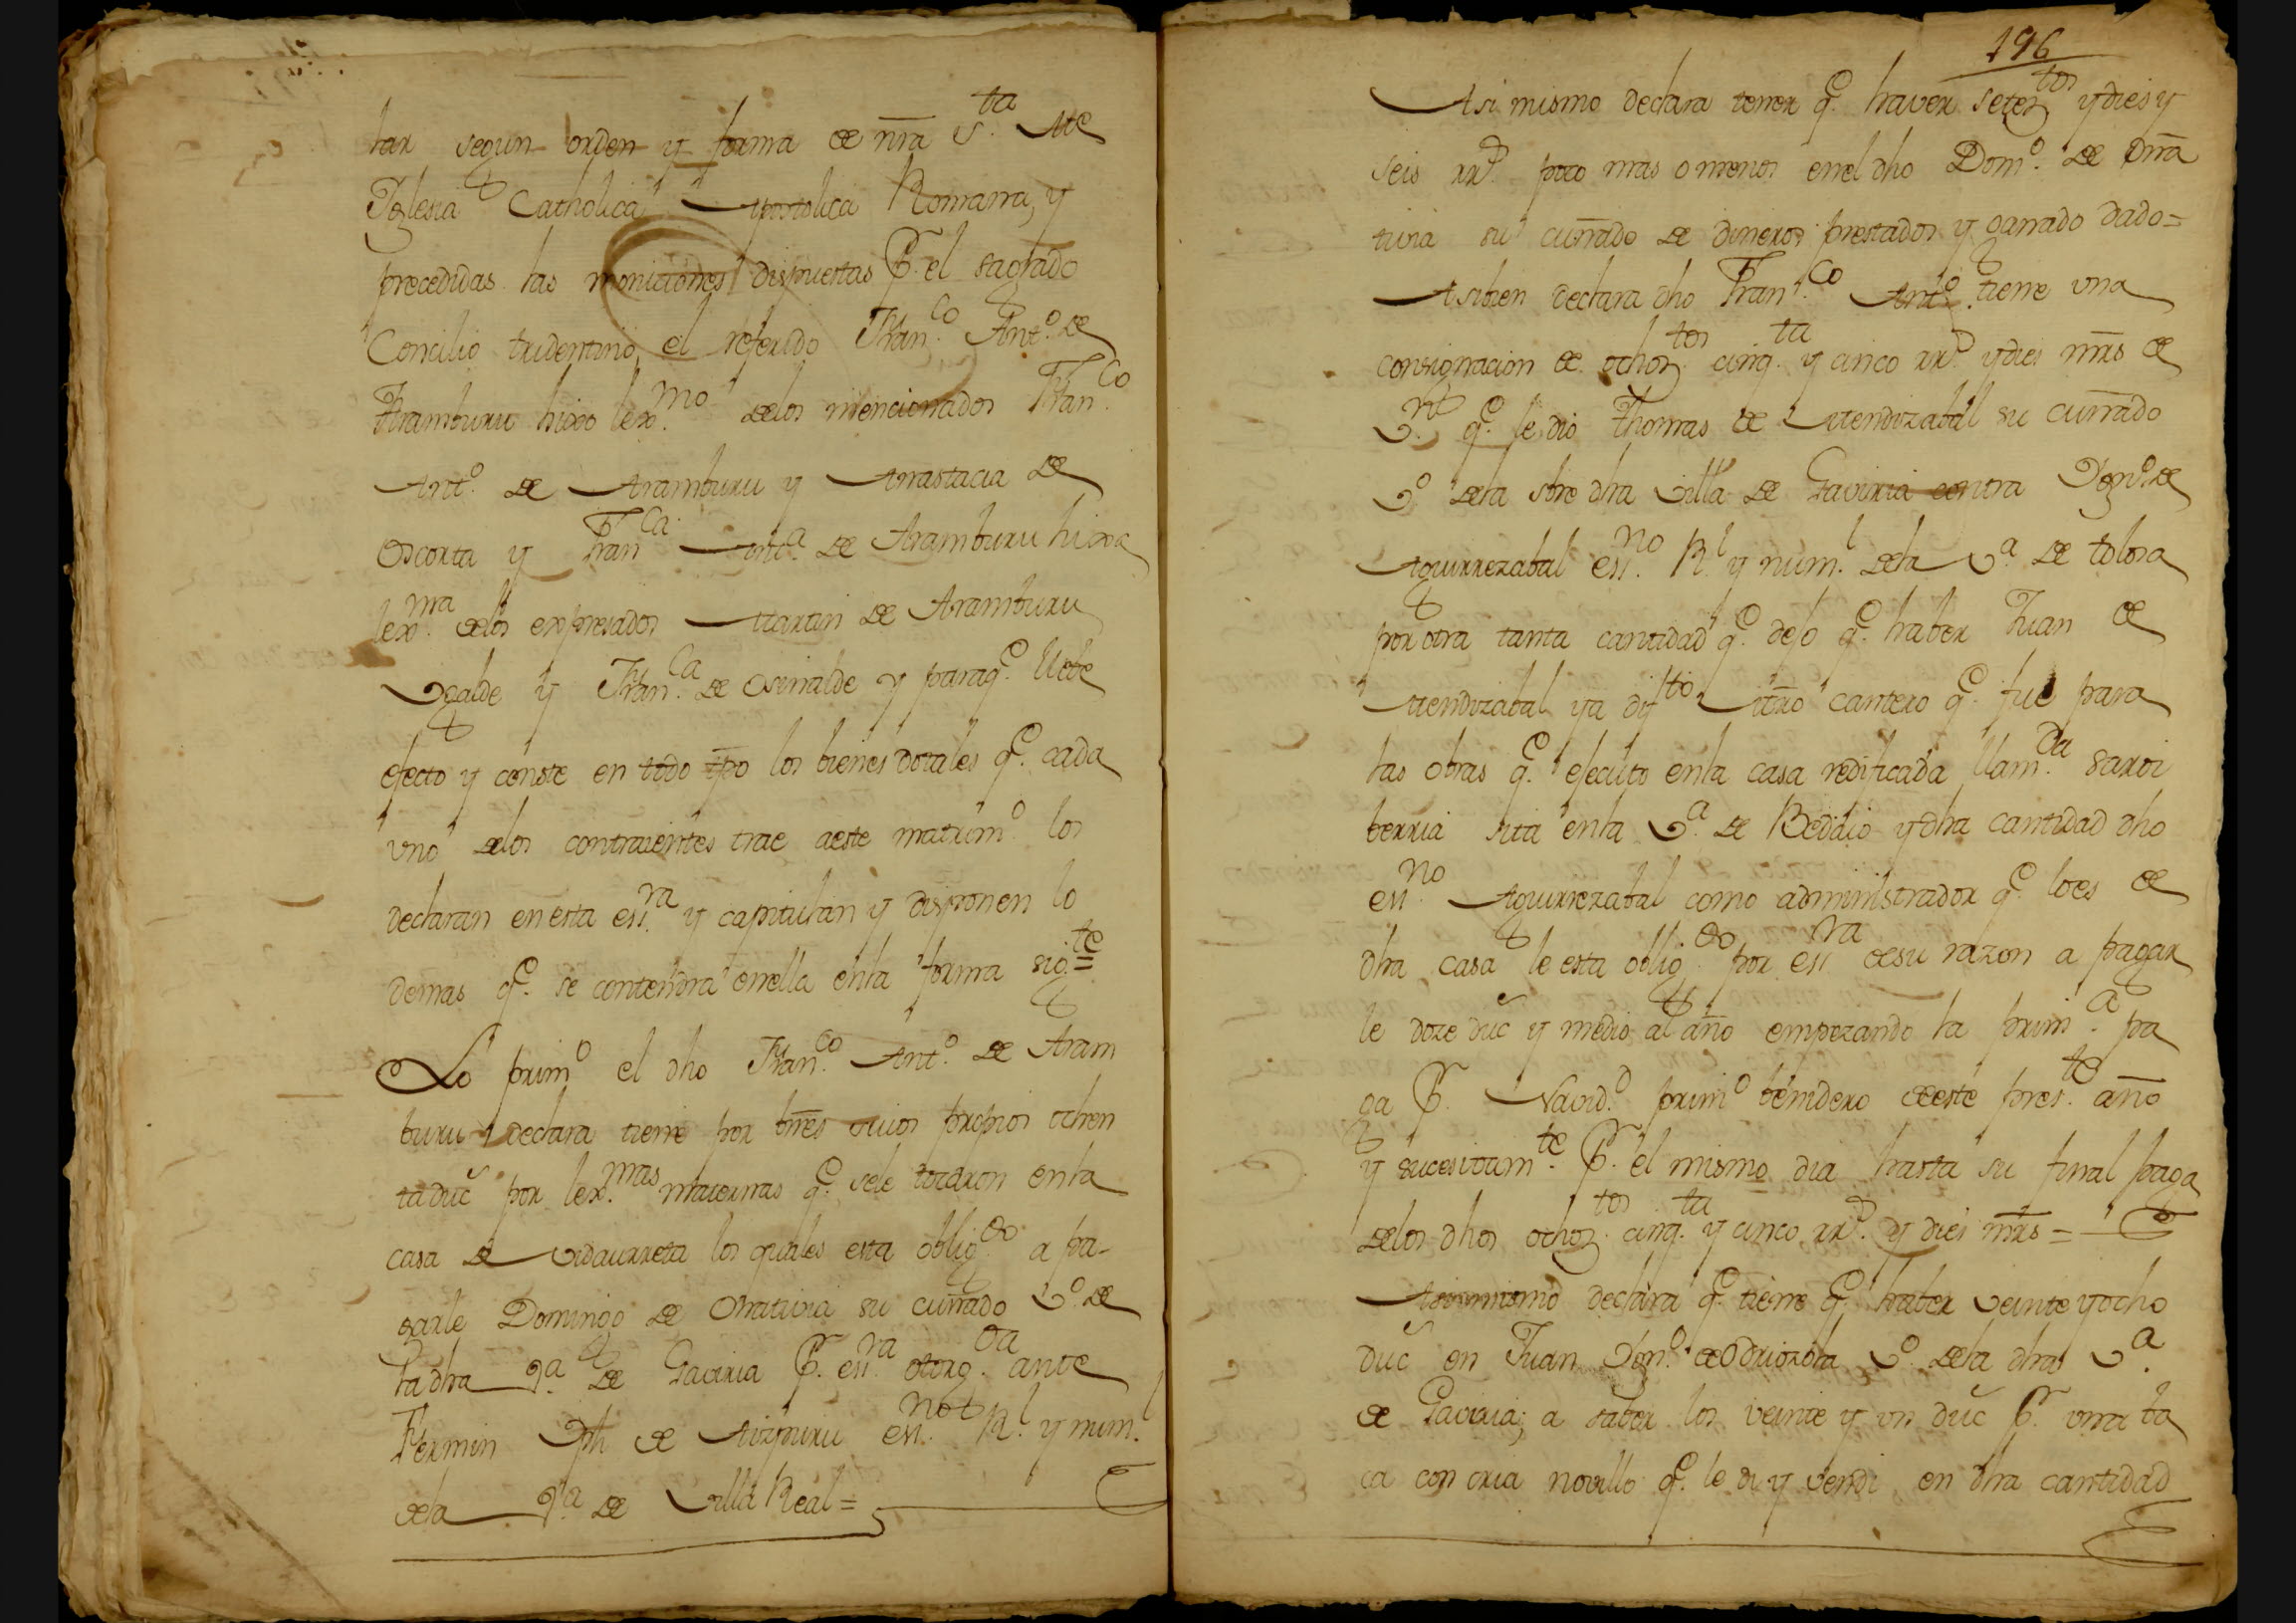 tar segun orden y forma de nr̃a S.ta Me
Iglesia Catholica Apostolica Romana, y
precedidas las moniciones dispuestas P.r el sagrado
Concilio tridentino, el referido Fran.co Ant.o de
Aramburu hixo lex.mo delos mencionados Fran.co
Ant.o de Aramburu y Anastacia de
Oscorta y Fran.ca Ant.a de Aramburu hixa
lex.ma delos expresados Martin de Aramburu
Vgalde y Fran.ca de Osinalde y paraq.e llebe
efecto y conste en todo tp̃o los bienes dotales q.e cada
vno delos contraientes trae aeste matrim.o los
declaran enesta ess.ra y capitulan y disponen lo
demas q.e se contendra enella enla forma sig.te=
Lo prim.o el dho Fran.co Ant.o de Aram
buru declara tiene por bñes suios propios ochen
ta duc̃ por lex.mas maternas q.e sele tocaron enla
casa de Vidaurreta los quales esta oblig.do a pa-
garle Domingo de Oñativia su cuñado v.o de
la dha v.a de Gaviria P.r ess.ra otorg.da ante
Fermin Jph de Aizpuru ess.no R.l y num.l
dela v.a de Villa Real=
196
Asi mismo declara tener q.e haver setez.tos y dies y
seis rr.s poco mas o menos enel dho Dom.o de Oñã
tivia su cuñado de dineros prestados y ganado dado=
Asibien declara dho Fran.co Ant.o tiene vna
consignacion de ochoz.tos cinq.ta y cinco rr.s y dies mr̃s de
v.n q.e le dio Thomas de Mendizabal su cuñado
v.o dela sbre dha villa de Gaviria contra Dom.o de
Aguirrezabal ess.no R.l y num.l dela v.a de tolosa
por otra tanta cantidad q.e dejo q.e haber Juan de
Mendizabal ya dif.to Mr̃o cantero q.e fue para
las obras q.e ejecuto enla casa redificada llam.da saroi
berria sita enla v.a de Bedaio y dha cantidad dho
ess.no Aguirrezabal como administrador q.e loes de
dha casa le esta oblig.do por ess.ra desu razon a pagar
le doze duc̃ y medio al año empezando la prim.a pa
ga P.r Navid.d prim.o benidero deeste pres.te año
y sucesivam.te P.r el mismo dia hasta su final paga
delos dhos ochoz.tos cinq.ta y cinco rr.s y dies mr̃s=
Asimismo declara q.e tiene q.e haber veinte y ocho
duc̃ en Juan Dom.o de Odriozola v.o dela dha v.a
de Gaviria; a saber los veinte y vn duc̃ P.r vna ba
ca con cria novillo q.e le di y vendi en dha cantidad